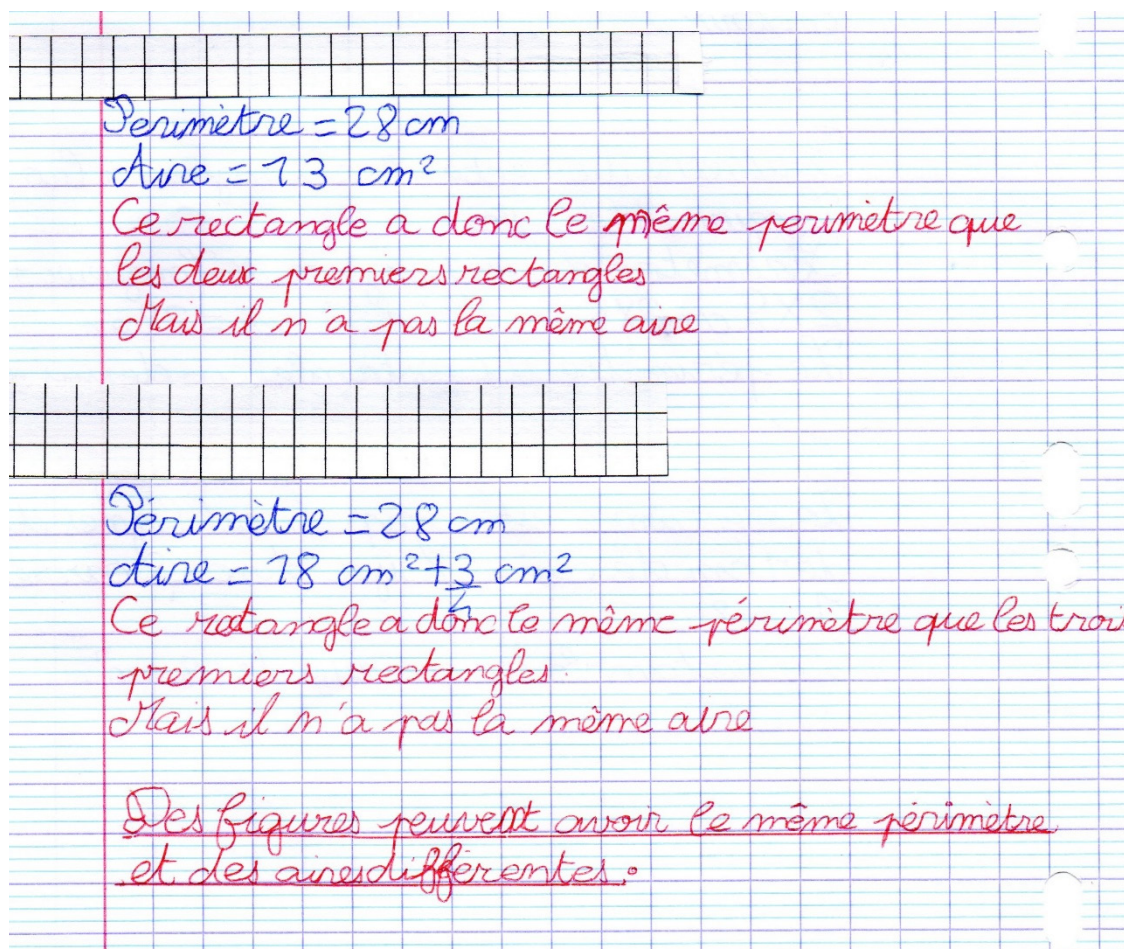 Perimètre = 28 cm
Aire = 13 cm²
Ce rectangle a donc le même perimètre que
les deux premiers rectangles
Mais il n'a pas la même aire
Périmètre = 28 cm
Aire = 18 cm² + 3/4 cm²
Ce rectangle a donc le même périmètre que les troi
premiers rectangles.
Mais il n'a pas la même aire
Des figures peuvent avoir le même périmètre
et des aires différentes.